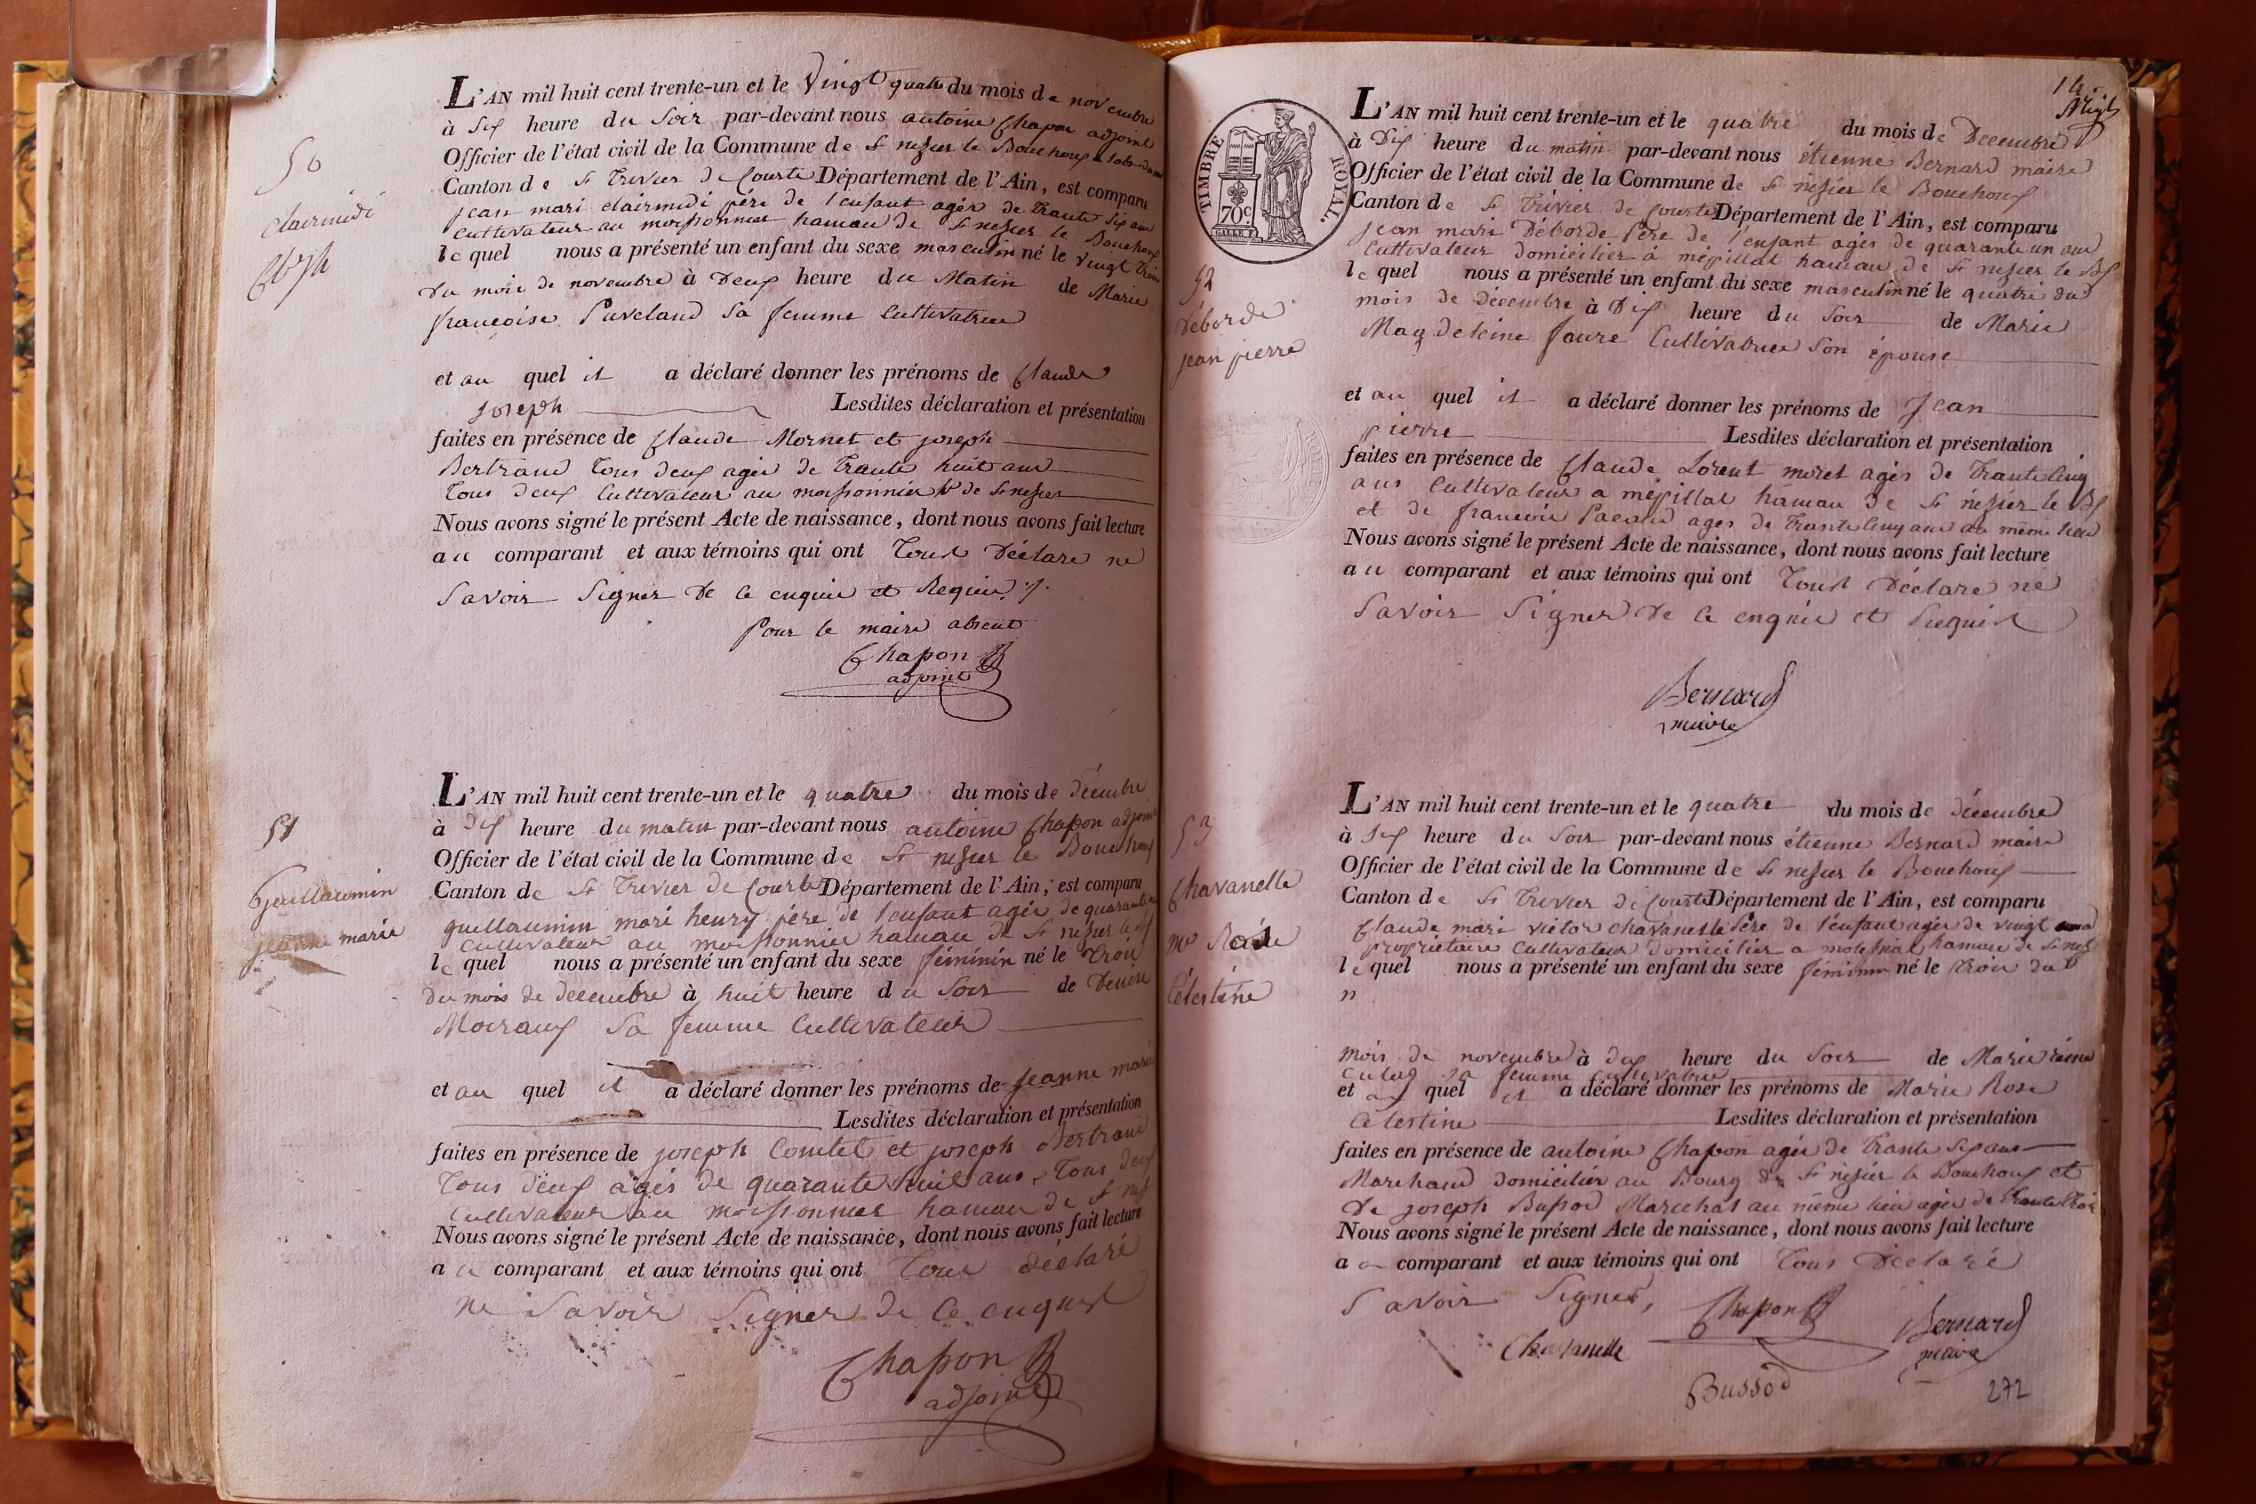 50
clairmidi
L'AN mil huit cent trente-un et le vingt quatre du mois de novembre
à six heure du soir par-devant nous antoine Chapon adjoint
Officier de l'état civil de la Commune de St nesier le Bouchoux
Canton de St Trivier de Courte Département de l'Ain, est comparu
jean mari clairmidi père de l'enfant agér de trante six ans
cultivateur au moissonnier hamau de St nesier le Bouchoux
le quel nous a présenté un enfant du sexe masculin né le vingt trois
du mois de novembre à Deux heure du Matin de Marie
françoise Puveland sa femme Cultivatrice
et au quel il a déclaré donner les prénoms de Claude
joseph Lesdites déclaration et présentation
faites en présence de Claude Mornet et joseph
Bertrand tous deux agér de trante huit ans
tous deux Cultivateur au moissonnier hu de St nesier
Nous avons signé le présent Acte de naissance, dont nous avons fait lecture
au comparant et aux témoins qui ont tous Déclare ne
savoir signer de ce enquie et Requie
Pour le maire absent
Chapon
adjoint
51
Guillaumin
jeanne marie
L'AN mil huit cent trente-un et le quatre du mois de décembre
à Dix heure du matin par-devant nous antoine Chapon adjoint
Officier de l'état civil de la Commune de St nesier le Bouchoux
Canton de St Trivier de Courte Département de l'Ain, est comparu
guillaumin mari henry père de l'enfant agér de quarante
Cultivateur au moissonnier hamau de St nesier le Bx
le quel nous a présenté un enfant du sexe féminin né le trois
du mois de decembre à huit heure du soir de Denise
Moiraux sa femme Cultivateur
et au quel il a déclaré donner les prénoms de Jeanne marie
Lesdites déclaration et présentation
faites en présence de joseph Comtet et joseph Bertrand
tous deux agés de quarante huit ans, tous deux
Cultivateur au moissonnier hamau de St nes
Nous avons signé le présent Acte de naissance, dont nous avons fait lecture
au comparant et aux témoins qui ont tous déclaré
ne savoir signer de ce enquest
Chapon
adjoint
TIMBRE ROYAL.
70c
14
52
Déborde
jean pierre
L'AN mil huit cent trente-un et le quatre du mois de Decembre
à Dix heure du matin par-devant nous étienne Bernard maire
Officier de l'état civil de la Commune de St nesier le Bouchoux
Canton de St Trivier de Courte Département de l'Ain, est comparu
jean mari Déborde Père de l'enfant agés de quarante un ans
Cultivateur domicilier à mépillat hamau de St nesier le Bx
le quel nous a présenté un enfant du sexe masculin né le quatre du
mois de Décembre à Dix heure du soir de Marie
Magdeleine Faure Cultivatrice son épouse
et au quel il a déclaré donner les prénoms de Jean
pierre Lesdites déclaration et présentation
faites en présence de Claude Lorent moret agés de trante cinq
ans Cultivateur a mépillat hamau de St nesier le Bx
et de françois Pacaud ages de trante cinq ans au même lieu
Nous avons signé le présent Acte de naissance, dont nous avons fait lecture
au comparant et aux témoins qui ont tous Déclare ne
Savoir Signer de ce enquie et Requis
Bernard
maire
53
Chavanelle
me Rose
Célestine
L'AN mil huit cent trente-un et le quatre du mois de décembre
à six heure du soir par-devant nous étienne Bernard maire
Officier de l'état civil de la Commune de St nesier le Bouchoux
Canton de St Trivier de Courte Département de l'Ain, est comparu
Claude mari victor chavanelle Père de l'enfant agér de vingt
propriétaire Cultivateur domicilier a hamau de St nes
le quel nous a présenté un enfant du sexe féminin né le trois du
n
mois de novembre à dix heure du soir de Marie reine
Cutag sa femme cultivatrice
et au quel il a déclaré donner les prénoms de Marie Rose
Célestine Lesdites déclaration et présentation
faites en présence de antoine Chapon agér de trante six ans
Marchand domicilier au Bourg de St nesier le Bouchoux et
De joseph Bussod Marechal au même lieu agér de trante trois
Nous avons signé le présent Acte de naissance, dont nous avons fait lecture
au comparant et aux témoins qui ont tous Déclaré
savoir signer,
Chapon
Bernard
Chavanelle
maire
Bussod
272